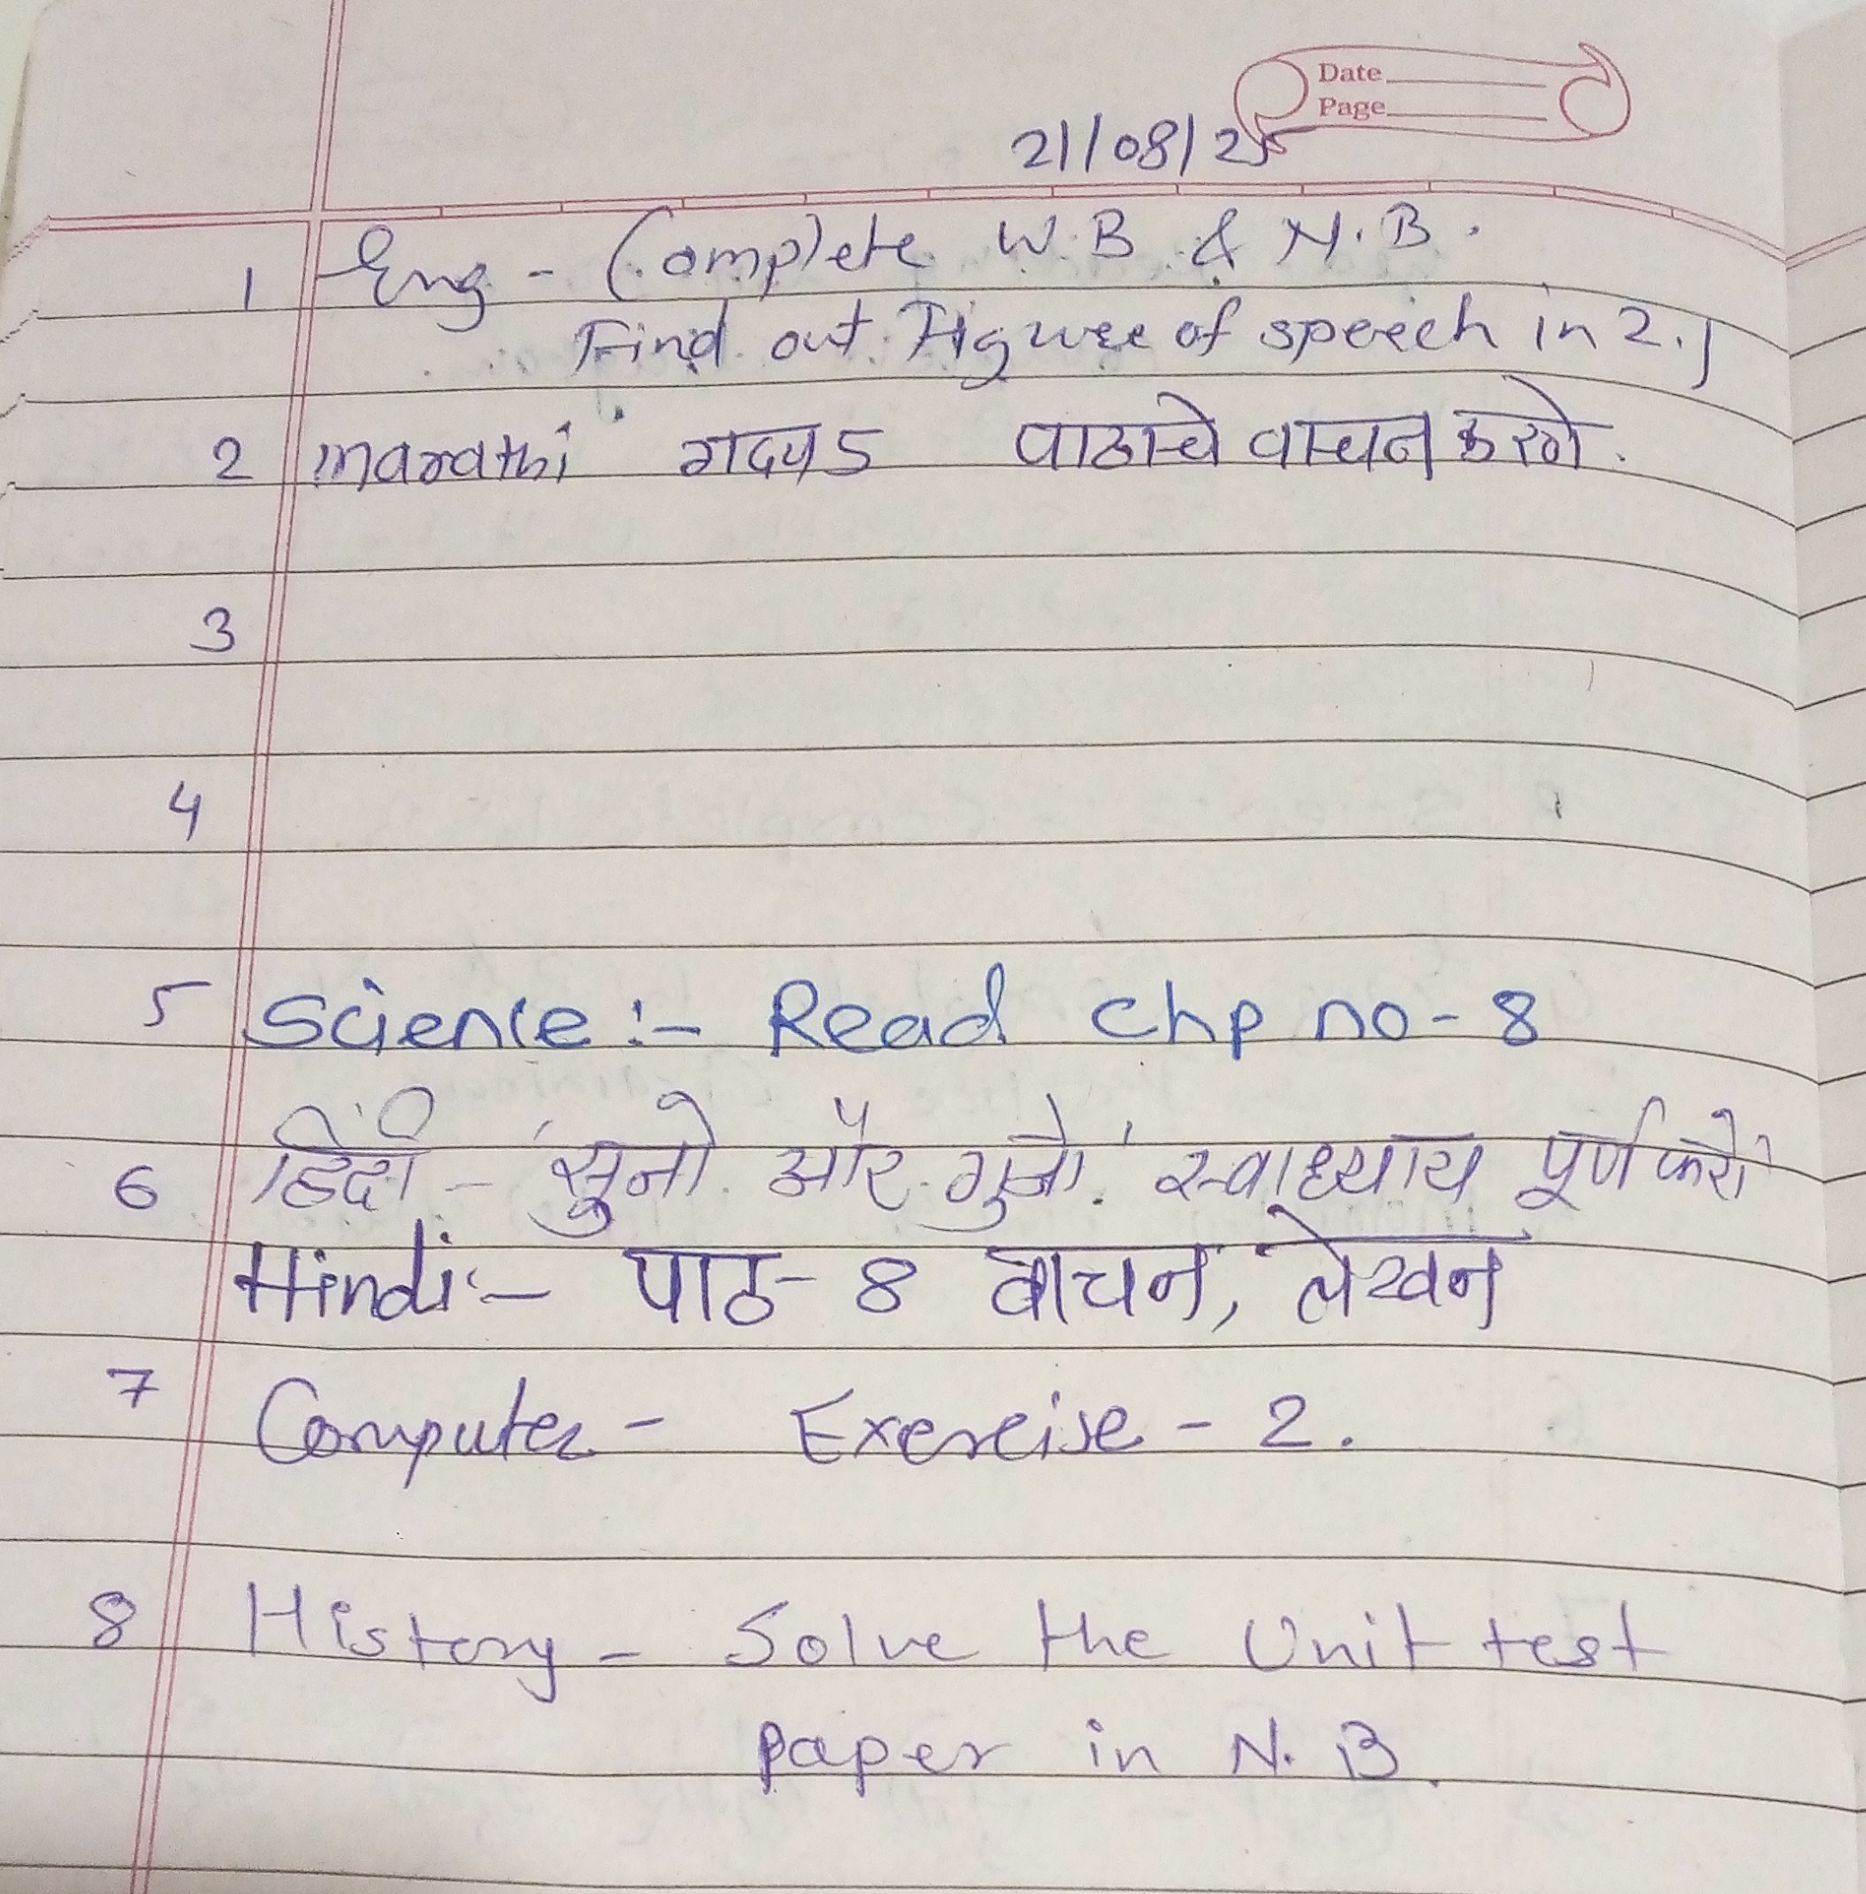 Date
Page
21/08/25
1 Eng - Complete W.B & N.B.
Find out Figure of speech in 2.1
2 marathi गद्य 5 पाठाचे वाचन करणे.
3
4
5 Science :- Read chp no - 8
6 हिंदी - 'सुनो और गुनो' स्वाध्याय पूर्ण करो
Hindi :- पाठ - 8 वाचन, लेखन
7 Computer - Exercise - 2.
8 History - Solve the Unit test
paper in N.B.